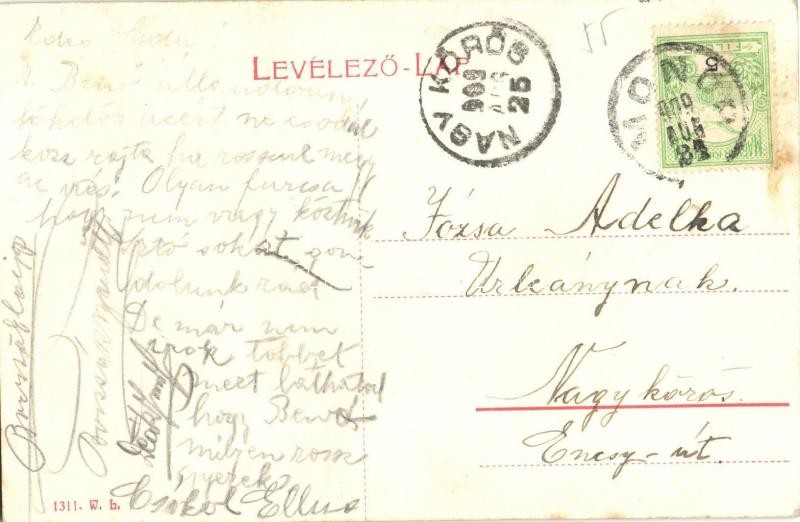 Édes Andi
LEVÉLEZŐ-LAP
A Benő állandóan
lökdös azért ne csodál
kozz rajta ha rosszul megy
az írás. Olyan furcsa
hogy nem vagy köztünk
sokat gon-
dolunk rád
De már nem
írok többet
mert láthatod
hogy Benő
milyen rossz
gyerek
Csókol Ellus
NAGY KŐRÖS
909
AUG
25
MONOR
909
AUG
FILL
5
Józsa Adélka
Urleánynak.
Nagykőrös.
Encsy-út.
1311. W. b.